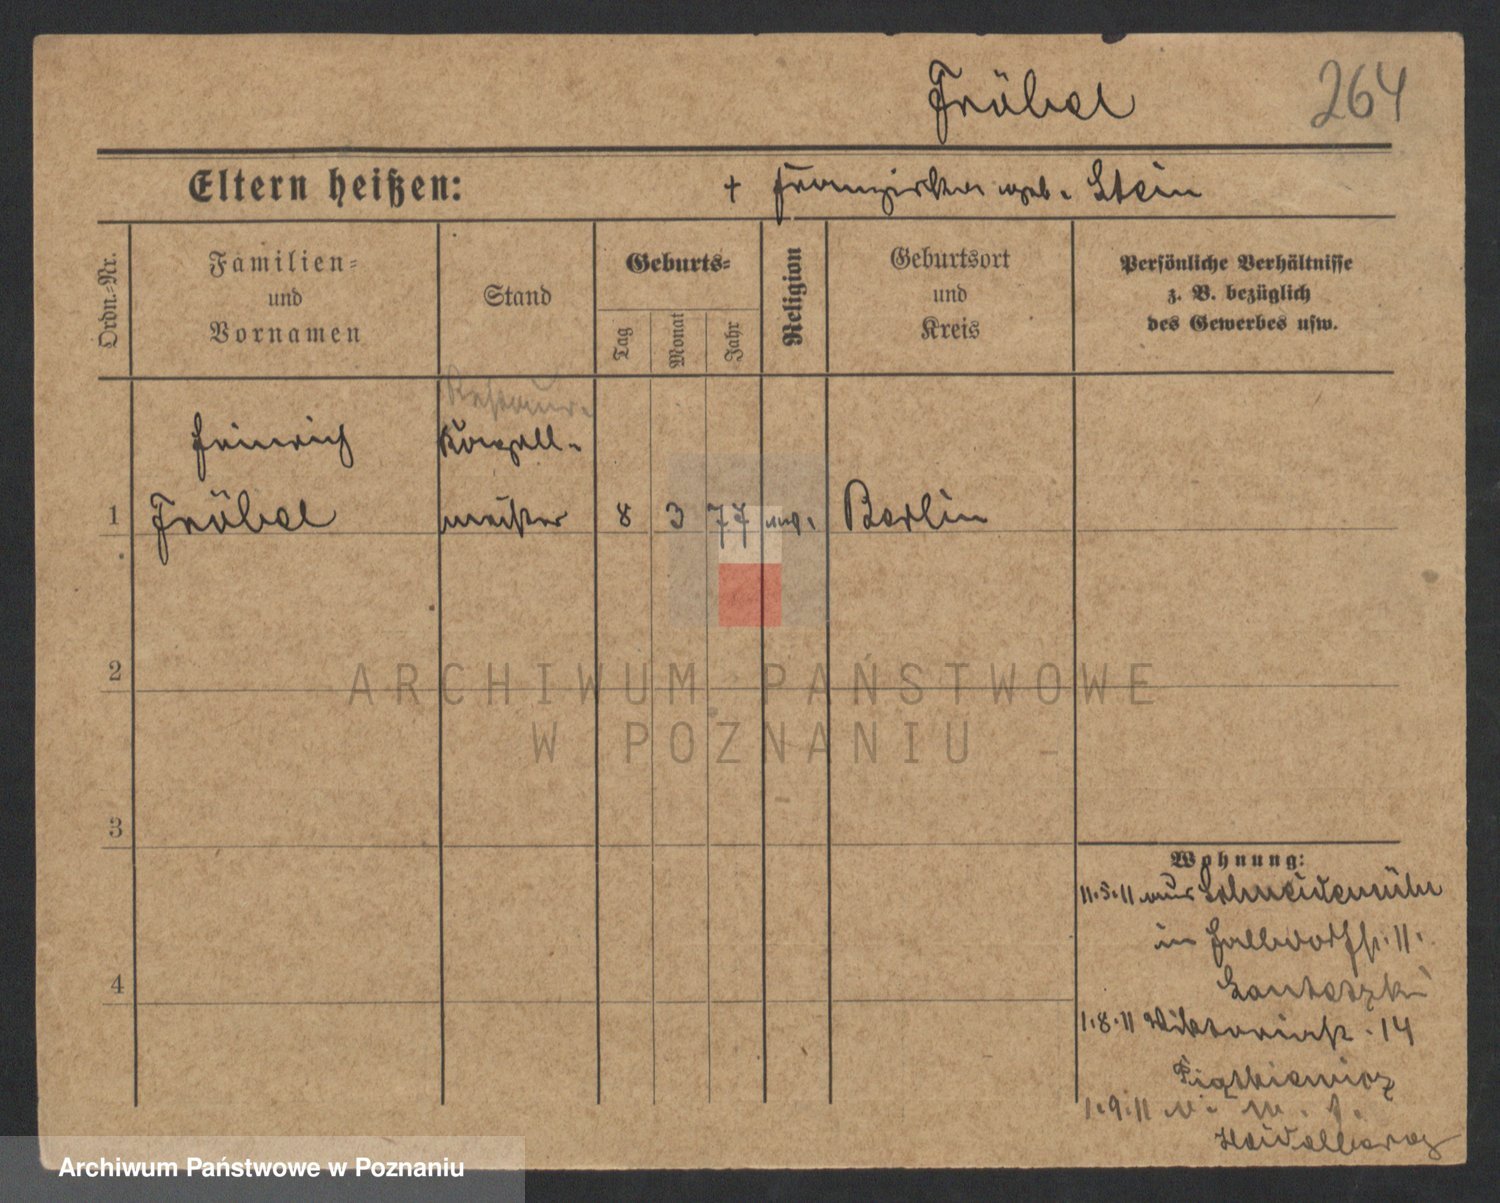 Fröbel 264
Eltern heißen: + Franziska geb. Stein
Ordn.-Nr.
Familien-
und
Vornamen
Stand
Geburts-
Tag
Monat
Jahr
Religion
Geburtsort
und
Kreis
Persönliche Verhältnisse
z. B. bezüglich
des Gewerbes usw.
Heinrich Kapell-
1 Fröbel meister 8 3 77 Berlin
2
ARCHIWUM PAŃSTWOWE
W POZNANIU
3
4
Wohnung:
11.5.11 aus Schneidemühl
in Halbdorfstr. 11.
1.8.11 Viktoriastr. 14
Piątkiewicz
1.9.11
Heidelberg
Archiwum Państwowe w Poznaniu